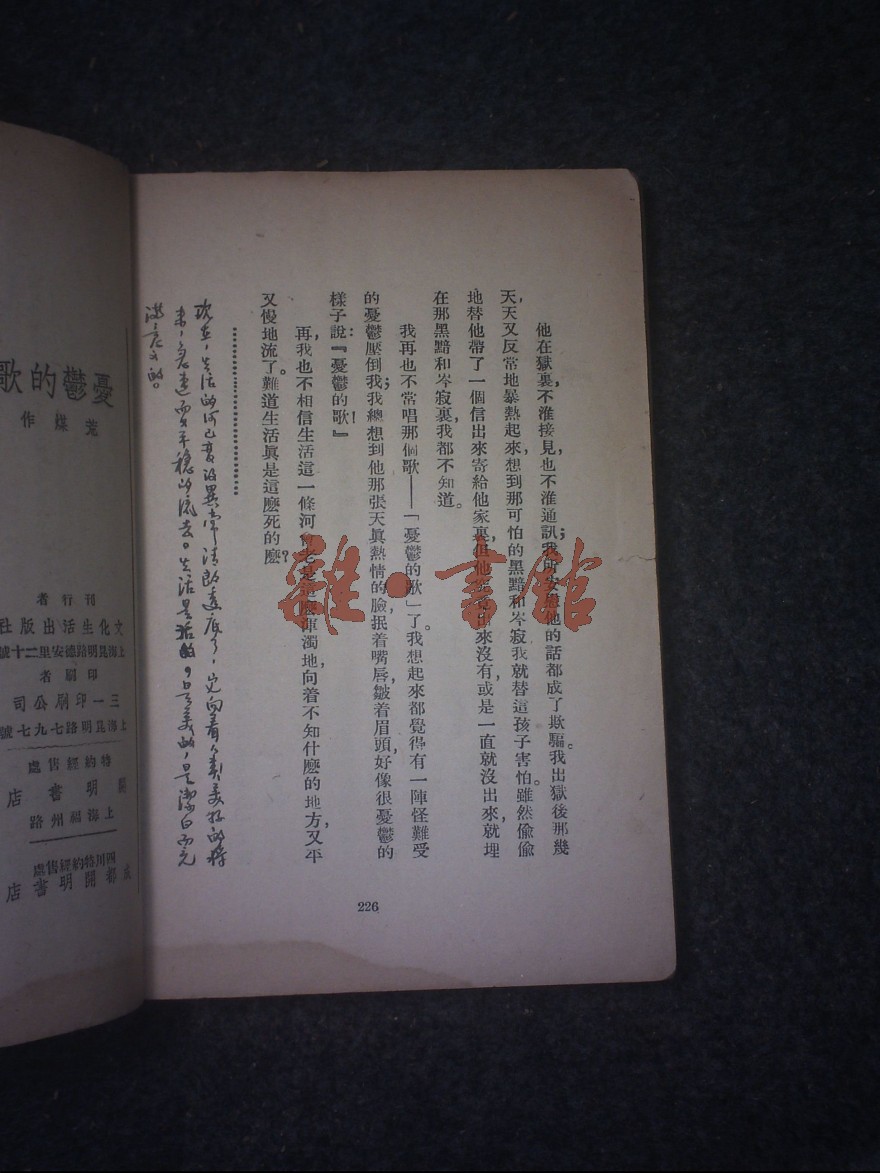 他在獄裏,不准接見,也不准通訊;我所安慰他的話都成了欺騙。我出獄後那幾
天,天又反常地暴熱起來,想到那可怕的黑黯和岑寂我就替這孩子害怕。雖然偷偷
地替他帶了一個信出來寄給他家裏,但他究竟出來沒有,或是一直就沒出來就埋
在那黑黯和岑寂裏,我都不知道。
我再也不常唱那個歌——「憂鬱的歌」了。我想起來都覺得有一陣怪難受
的憂鬱壓倒我;我總想到他那張天眞熱情的臉,抿着嘴唇,皺着眉頭,好像很憂鬱的
樣子說:『憂鬱的歌!』
再,我也不相信生活這一條河會老是這麼渾濁地,向着不知什麼的地方,又平
又慢地流了。難道生活眞是這麼死的麼?
現在,生活的河已變得異常清朗透底了,它向着美好的將
來,急速而又平穩的流去。生活是活的,是美的,是潔白而充
滿意义的。
226
憂鬱的歌
荒煤作
刊行者
文化生活出版社
上海昆明路德安里二十號
印刷者
三一印刷公司
上海昆明路七九七號
特約經售處
開明書店
上海福州路
四川特約經售處
成都開明書店
雜·書館